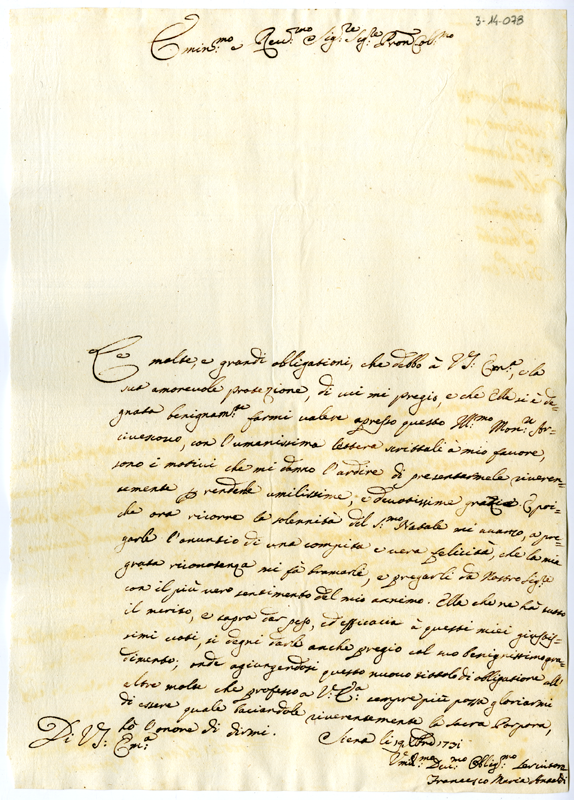 3-14-078
Emin.mo e Reu.mo Sig.re Sig.re Pron Col.mo
Le molte, e grandi obligationi, che debbo à V.ra Em.a, e la
sua amorevole protezione, di cui mi pregio, e che Ella si è de=
gnata benignam.te farmi valere apresso questo Ill.mo Mons.re Ar=
civescovo, con l'umanissima lettera scrittali à mio favore,
sono i motivi che mi danno l'ardire di presentarmele riveren=
temente p renderle umilissime, e devotissime grazie E poi=
che ora ricorre la solennità del S.mo Natale mi avanzo, a pre=
garle l'anuntio di una compita e vera felicità, che la mia
grata riconoscenza mi fà bramarle, e pregarli da Nostro Sig.re
con il più vero sentimento del mio animo. Ella che ne hà tutto
il merito, e saprà dar peso, ed efficacia à questi miei
voti, si degni darle anche pregio col suo benignissimo gra=
dimento; onde agiungendosi questo nuovo titolo di obligatione all'
altre molte che professo a V.ra E.a sempre più possa gloriarmi
di essere quale baciandole riverentemente la Sacra Porpora,
hò l'onore di dirmi. Siena li 19 Xbre 1731
Di V.ra Em.a
Umil.mo Dev.mo Oblig.mo Servitore
Francesco Maria